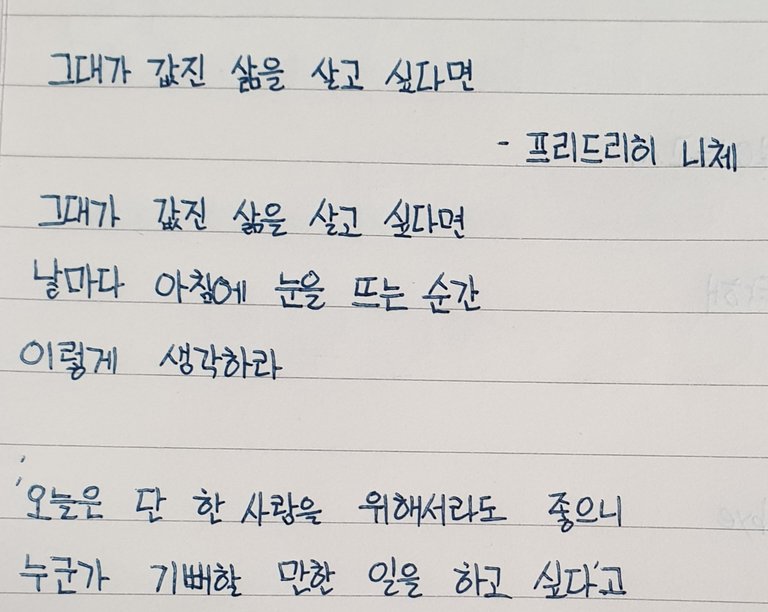 그대가 값진 삶을 살고 싶다면
- 프리드리히 니체
그대가 값진 삶을 살고 싶다면
날마다 아침에 눈을 뜨는 순간
이렇게 생각하라
'오늘은 단 한 사람을 위해서라도 좋으니
누군가 기뻐할 만한 일을 하고 싶다'고